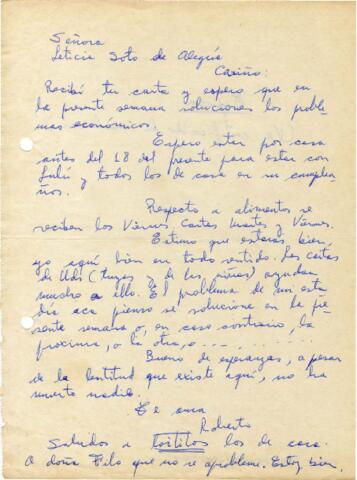 Señora
Leticia Soto de Alegría
Cariño:
Recibí tu carta y espero que en
la presente semana soluciones los proble-
mas económicos.
Espero estar por casa
antes del 18 del presente para estar con
Lulú y todos los de casa en su cumplea-
ños.
Respecto a alimentos se
reciben los Viernes. Cartas Martes y Viernes.
Estimo que estarás bien,
yo aquí bien en todo sentido. Las cartas
de Uds (tuyas y de las niñas) ayudan
mucho a ello. El problema de mi esta-
día acá pienso se solucione en la pre-
sente semana o, en caso contrario, la
próxima, o la otra, o......
Bueno de esperanzas, a pesar
de la lentitud que existe aquí, no ha
muerto nadie.
Te ama
Roberto
Saludos a toititos los de casa.
A doña Filo que no se aprobleme. Estoy bien.